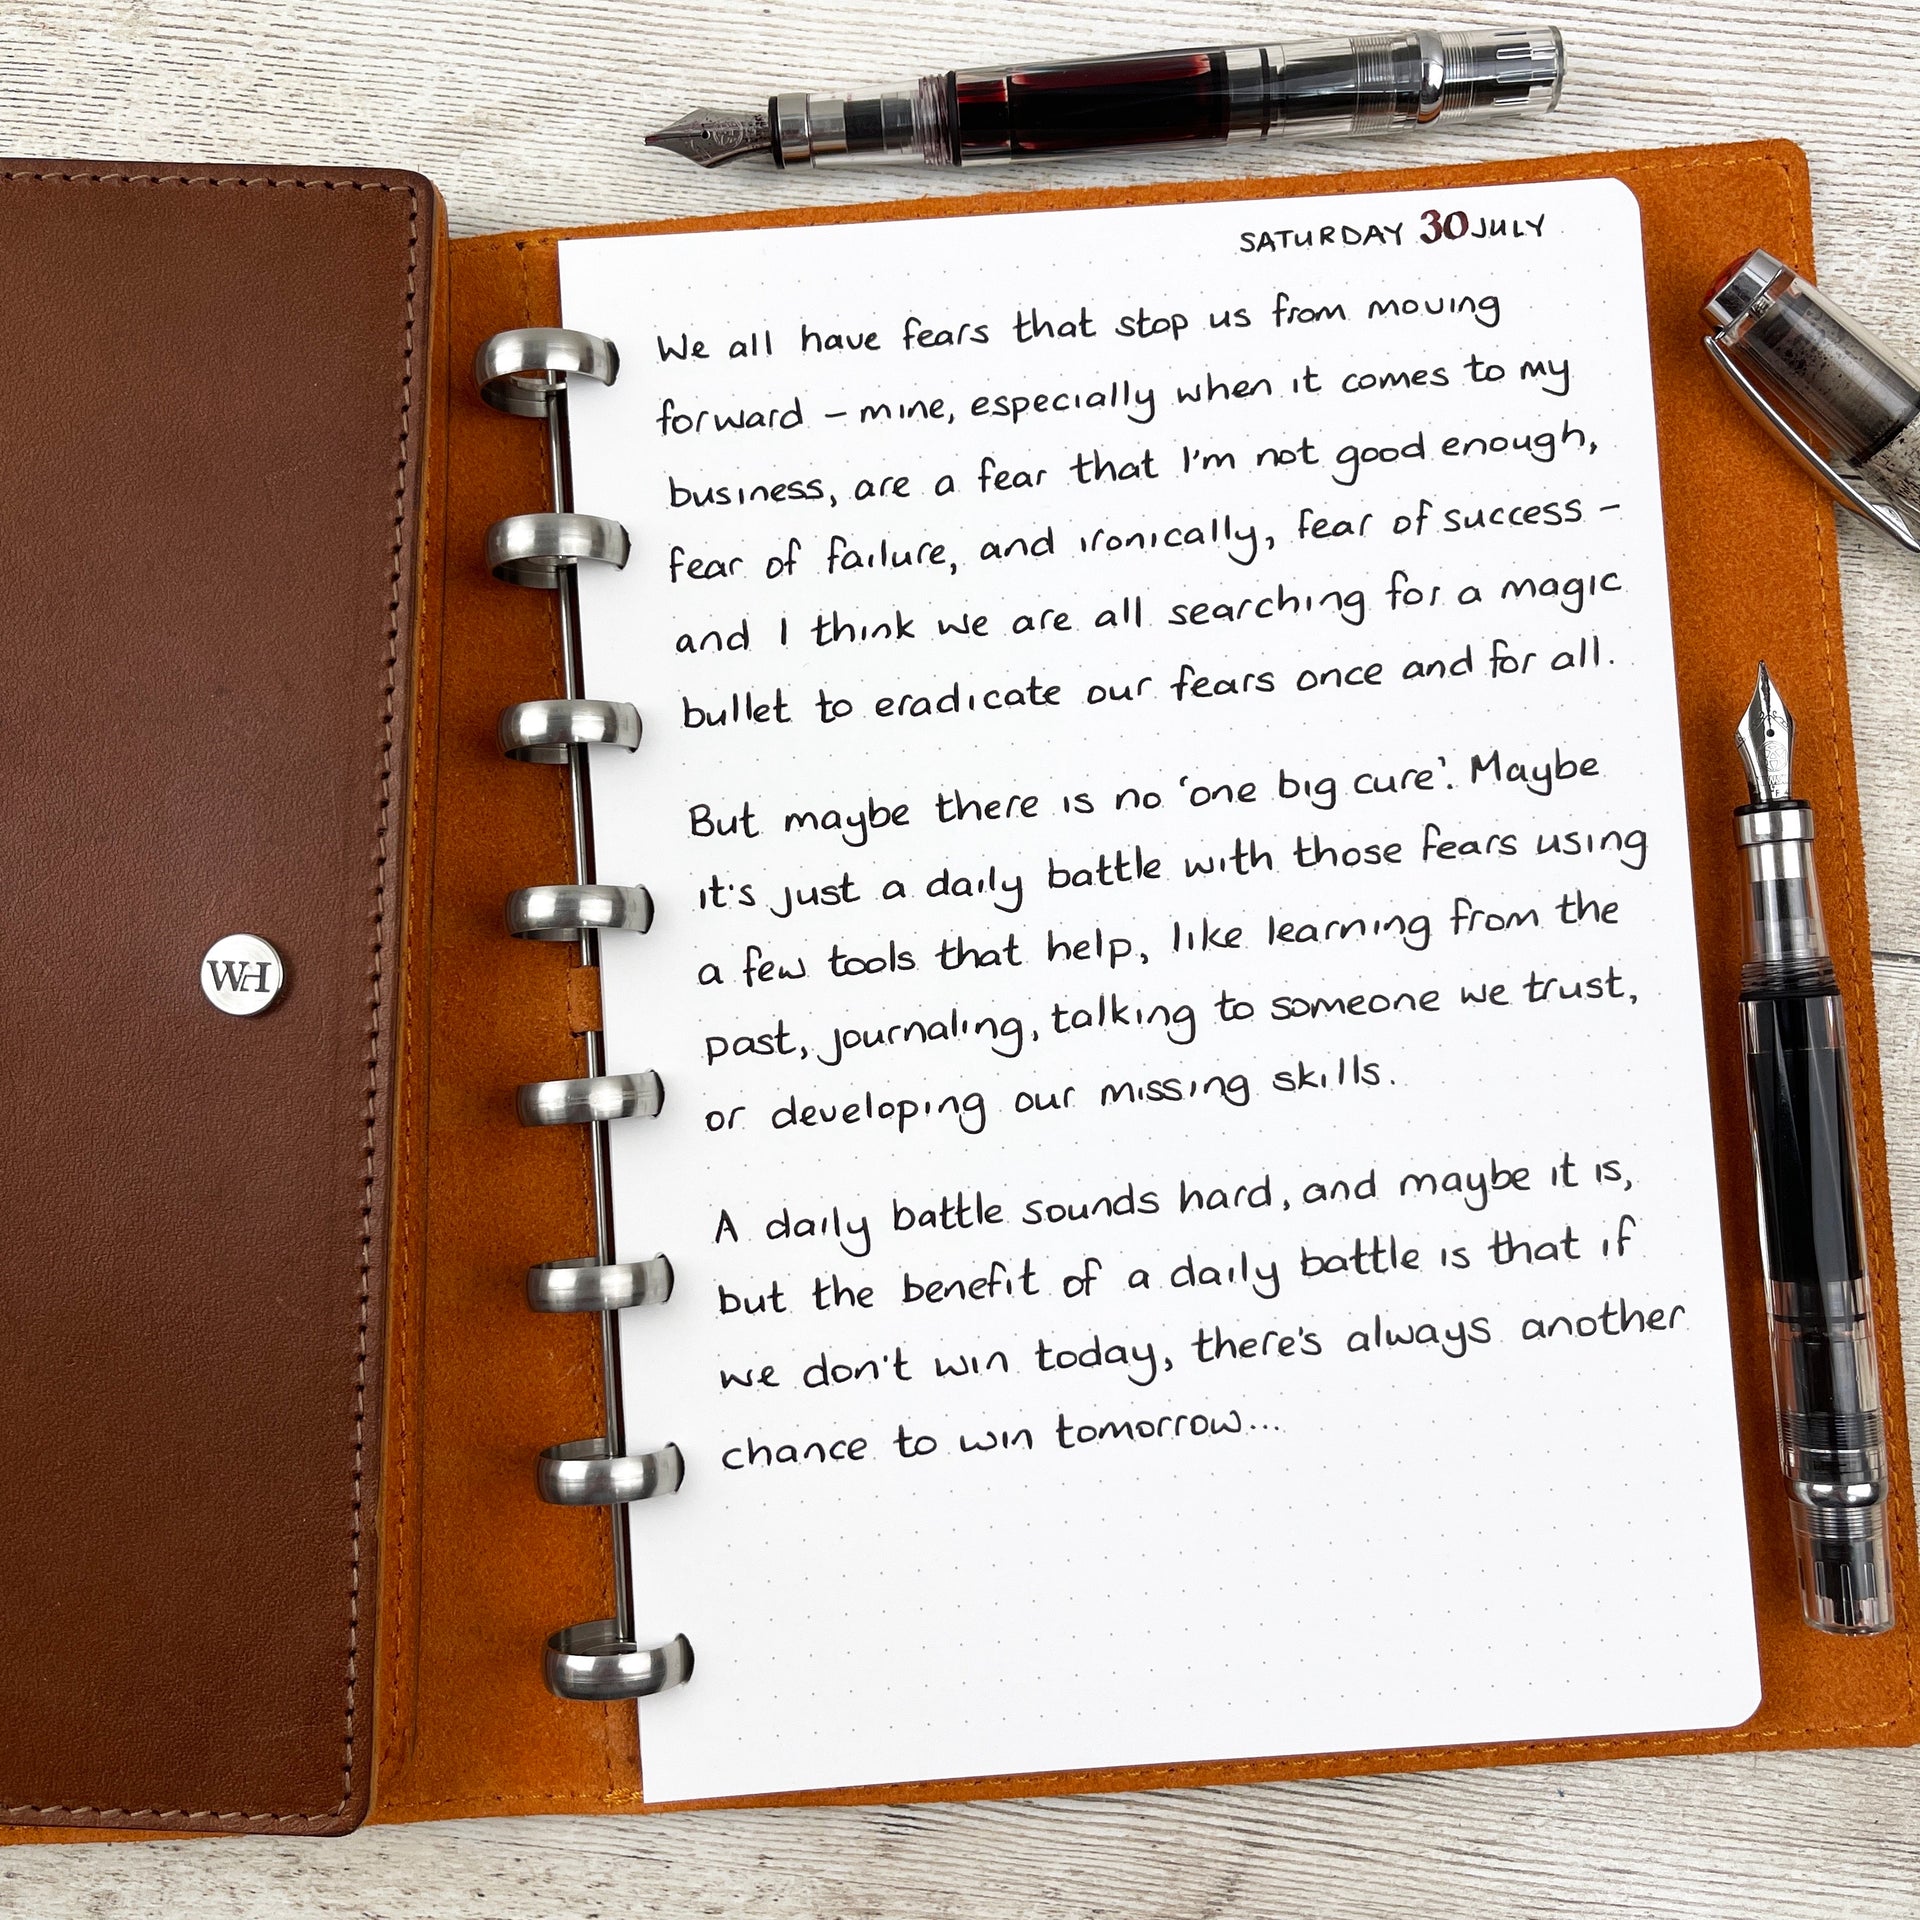 SATURDAY 30 JULY
We all have fears that stop us from moving
forward – mine, especially when it comes to my
business, are a fear that I'm not good enough,
fear of failure, and ironically, fear of success –
and I think we are all searching for a magic
bullet to eradicate our fears once and for all.
But maybe there is no 'one big cure'. Maybe
it's just a daily battle with those fears using
a few tools that help, like learning from the
past, journaling, talking to someone we trust,
or developing our missing skills.
A daily battle sounds hard, and maybe it is,
but the benefit of a daily battle is that if
we don't win today, there's always another
chance to win tomorrow...
WH